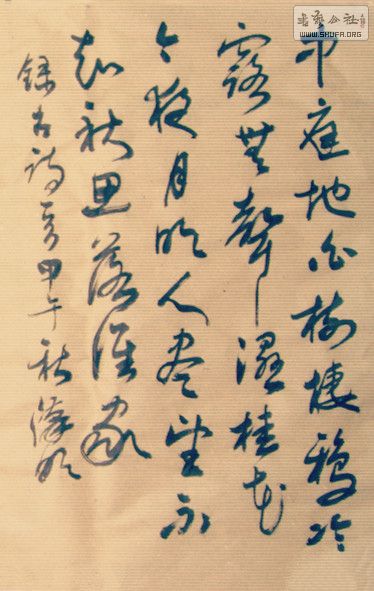 書藝公社
WWW.SHUFA.ORG
中庭地白樹棲鴉冷
露無聲濕桂花
今夜月明人尽望不
知秋思落誰家
録古詩一首甲午秋